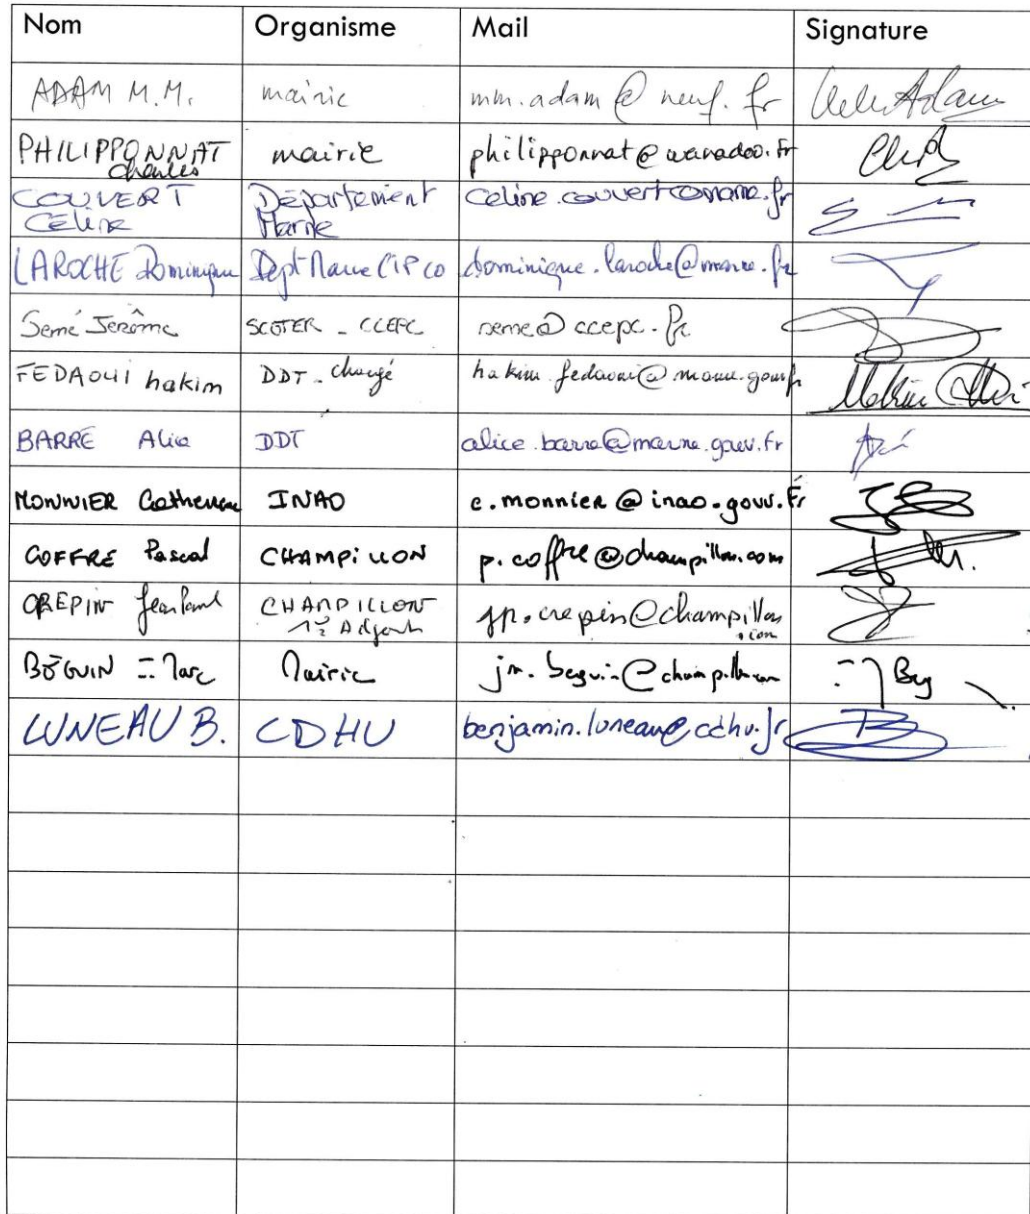 Nom Organisme Mail Signature
ADAM M.M. mairie mm.adam@neuf.fr Adam
PHILIPPONNAT mairie philipponnat@wanadoo.fr
Charles
COUVERT Département celine.couvert@marne.fr
Céline Marne
LAROCHE Dominique Dept Marne CIP CO dominique.laroche@marne.fr
Semé Jerôme SCOTER - CCEPC seme@ccepc.fr
FEDAOUI hakim DDT - Chargé hakim.fedaoui@marne.gouv.fr
BARRÉ Alice DDT alice.barre@marne.gouv.fr
MONNIER Catherine INAO c.monnier@inao.gouv.fr
COFFRE Pascal CHAMPILLON p.coffre@champillon.com
CREPIN Jean Paul CHAMPILLON jp.crepin@champillon
1er Adjoint .com
BÉGUIN J-Marc Mairie jm.beguin@champillon.com
LUNEAU B. CDHU benjamin.luneau@cdhu.fr